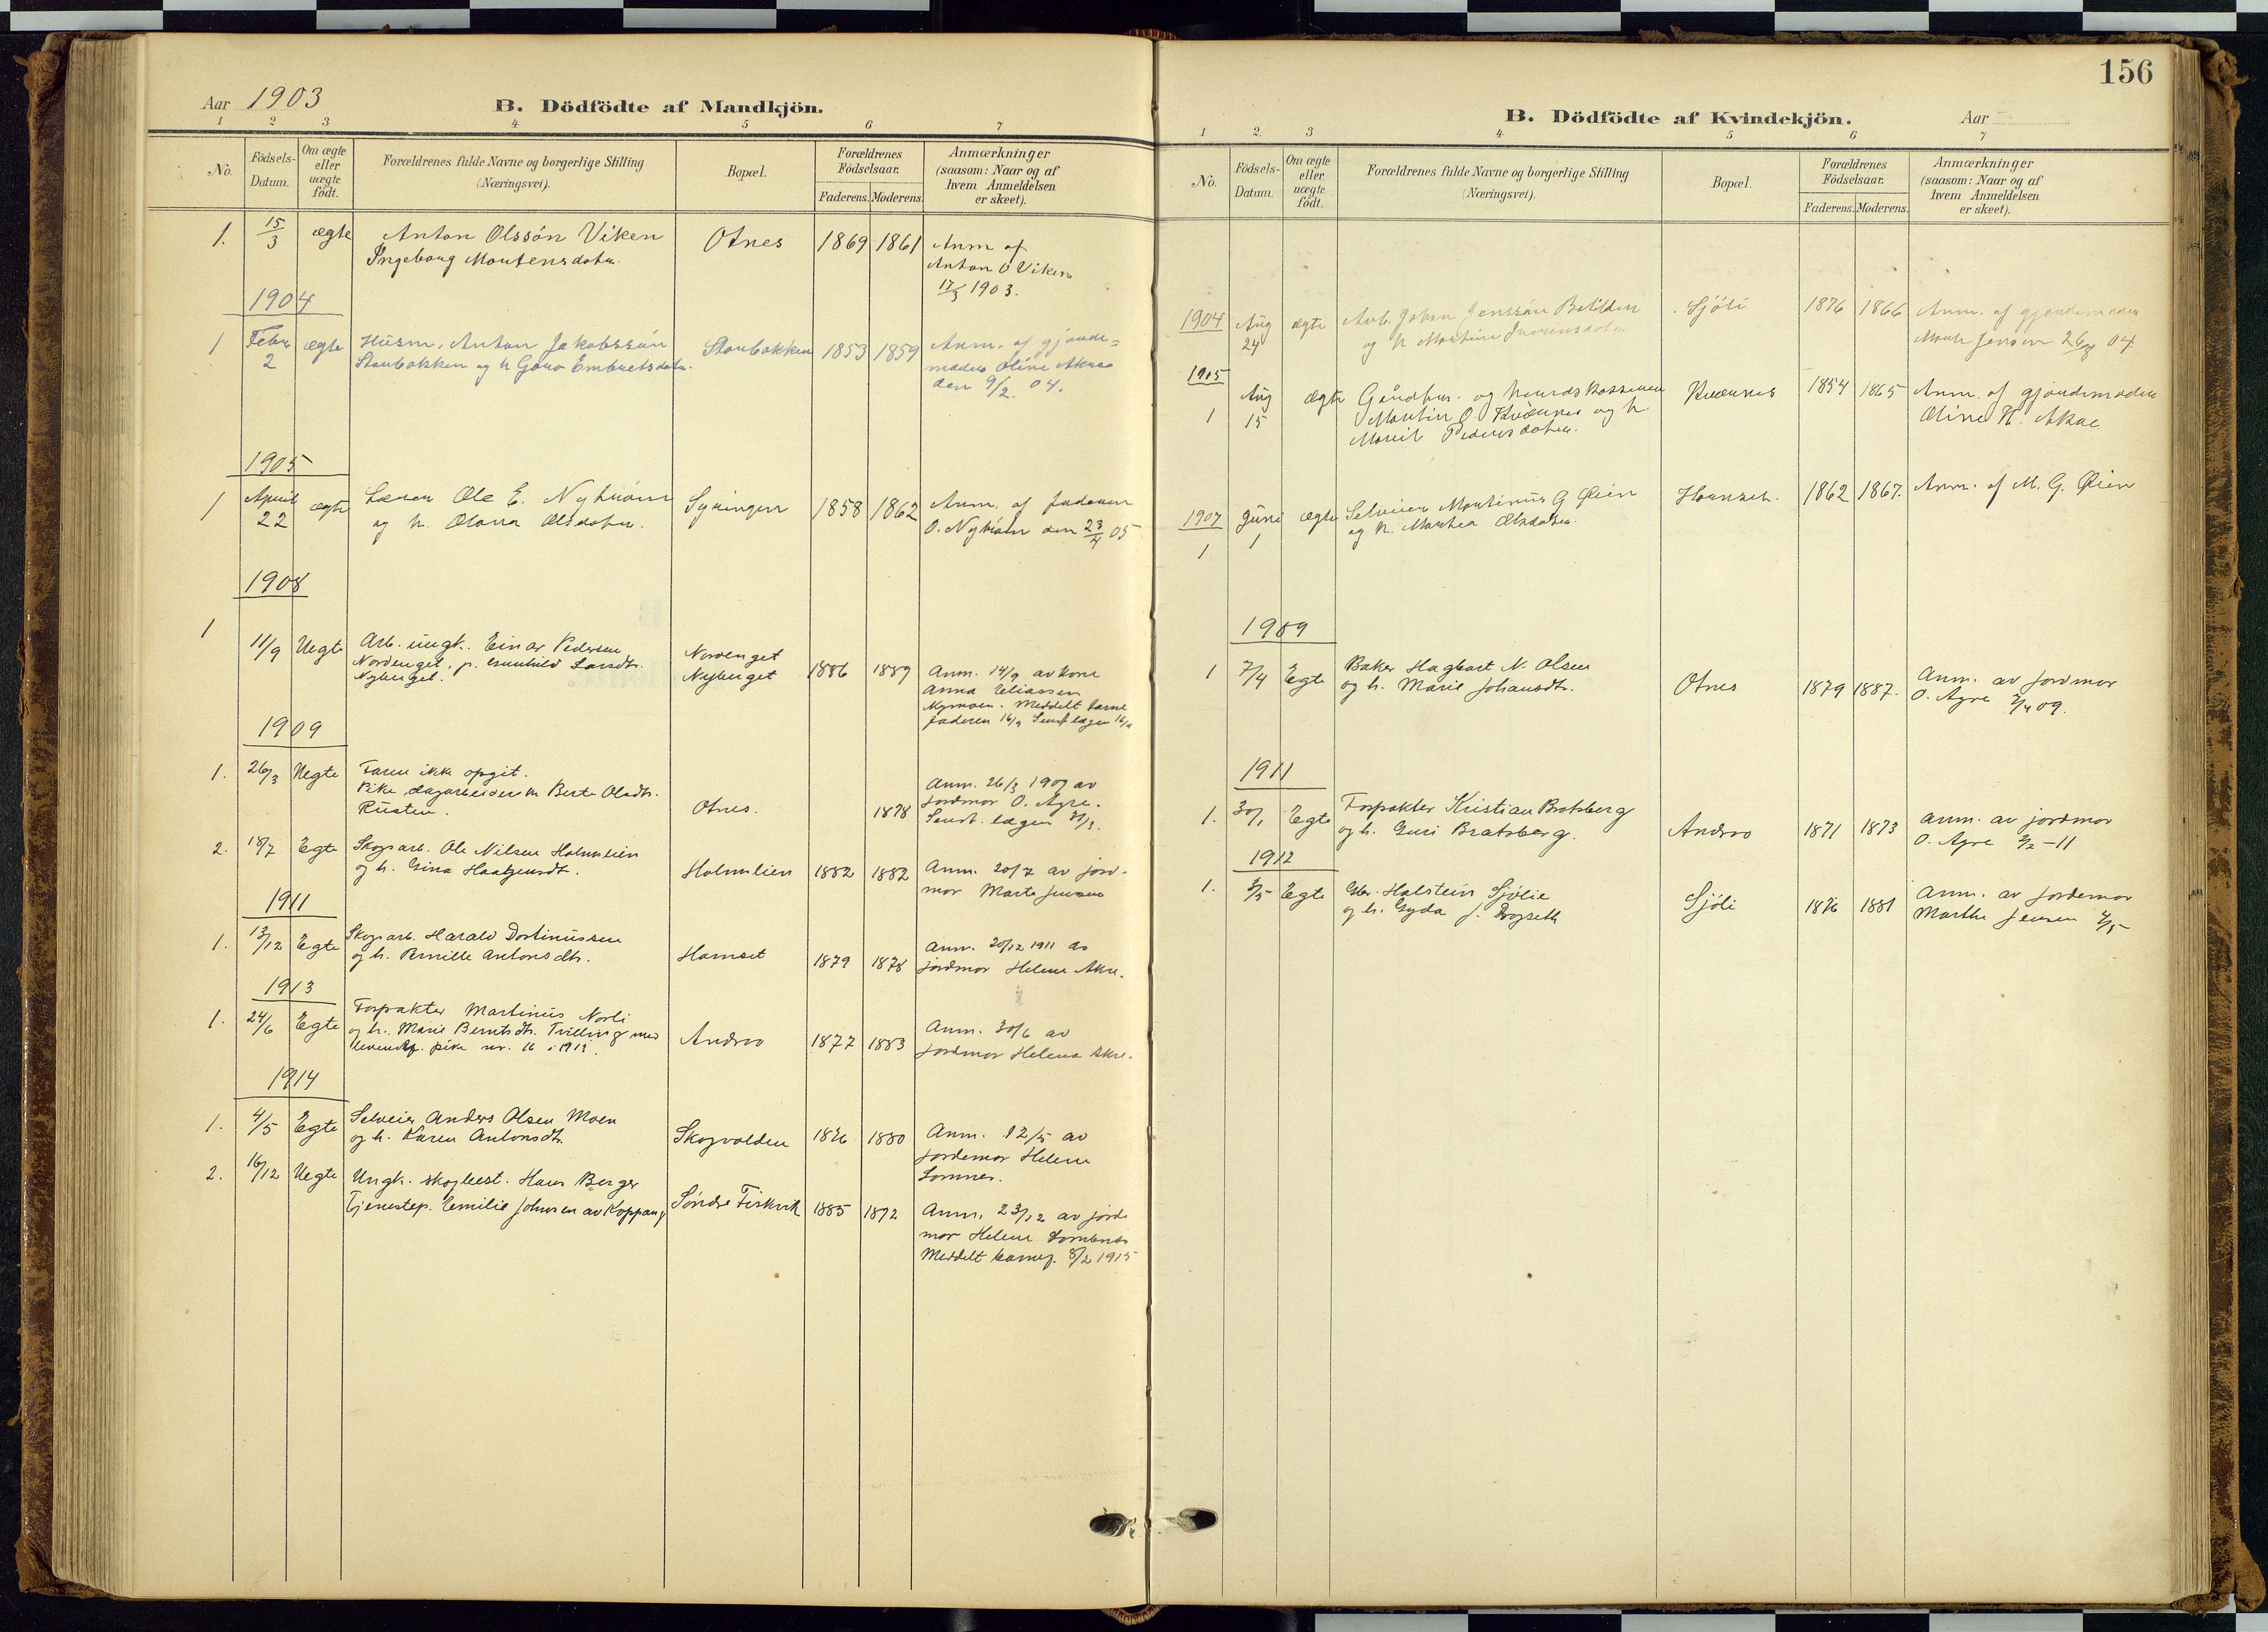 156
Aar 1903
B. Dödfödte af Mandkjön.
1 2 3 4 5 6 7
No.
Födsels-
Datum.
Om ægte
eller
uægte
födt.
Forældrenes fulde Navne og borgerlige Stilling
(Næringsvei).
Bopæl.
Forældrenes
Födselsaar.
Faderens. Moderens.
Anmærkninger
(saasom: Naar og af
hvem Anmeldelsen
er skeet).
1. 15/3 ægte Anton Olssön Viken Otnes 1869 1861 Anm af
Ingeborg Mortensdatter Anton O Viken
17/3 1903.
1904
1 Febr ægte Husm. Anton Jakobssön Storbakken 1853 1859 Anm. af gjorde=
2 Storbakken og h Goro Embretsdatter moder Oline Akre
den 9/2 04.
1905
1 April ægte Ole E. Nyström 1858 1862 Anm. af faderen
22 og h. Olava Olsdatter. O. Nyström den 23/4 05
1908
1
11/9 Uegte Arb. ungk. Einar Pedersen Nordenget
Nordenget, p. Gunhild Larsdtr. Nyberget 1886 1889 Anm. 14/9 av kone
Nyberget. Anna Eliassen
Nymoen. Meddelt barne
faderen 16/9 Sendt lægen 16/9
1909
1. 26/3 Uegte Faren ikke opgit.
Pike dagarbeiderske Berte Olsdtr. Otnes. 1878 Anm. 26/3 1909 av
Rusten. jordmor O. Agre.
Sendt lægen 31/3.
2. 18/7 Egte Skogsarb. Ole Nilsen Holmlien
og h. Gina Haagensdt. Holmlien 1882 1882 Anm. 20/7 av jord-
mor Marte Jensen
1911
1. 13/12 Egte Skogsarb. Harald Dortinussen
og h. Pernille Antonsdtr. Hornset 1879 1878 Anm. 20/12 1911 av
jordmor Helene Akre.
1913
1. 24/6 Egte Forpakter Martinus Norli
og h. Marie Berntsdtr. Tvilling med Andrao 1877 1883 Anm. 30/6 av
levendef. pike nr. 16 i 1913. jordmor Helene Akre.
1914
1. 4/5 Egte Selveier Anders Olsen Moen
og h. Karen Antonsdtr. Skogvolden 1876 1880 Anm. 12/5 av
jordemor Helene
Lomnes.
2. 16/12 Uegte Ungk. skogbest. Hans Berger
Tjenestep. Emilie Johnsen av Koppang Söndre Fiskvik 1885 1872 Anm. 23/12 av jord
mor Helene Lomnes
Meddelt barnef. 8/2 1915
B. Dödfödte af Kvindekjön.
Aar
1 2. 3 4 5 6 7
No.
Födsels-
Datum.
Om ægte
eller
uægte
födt.
Forældrenes fulde Navne og borgerlige Stilling
(Næringsvei).
Bopæl.
Forældrenes
Födselsaar.
Faderens. Moderens.
Anmærkninger
(saasom: Naar og af
hvem Anmeldelsen
er skeet).
1904 Aug ægte Arb. Johan Jenssön Sjöli 1876 1866 Anm. af gjordemoder
24 og h Martine Iversdatter Marte Jensen 26/8 04
1905
Aug ægte Gaardbr. og Kvernes 1854 1865 Anm. af gjordemoder
1 15 Martin O. Kvernes og h Oline H. Akre
Marit Pedersdatter.
1907 Juni ægte Selveier Martinus G Øien Hornset. 1862 1867. Anm. af M. G. Øien
1 1 og h. Martea Olsdatter.
1909
1 7/4 Egte Baker Hagbart N. Olsen
og h. Marie Johansdtr. Otnes 1879 1887. Anm. av jordmor
O. Agre 09.
1911
1. 30/1 Egte Forpakter Kristian Bratsberg
og h. Guri Bratsberg. Andrao 1871 1873 Anm. av jordmor
O. Agre 2/2-11
1912
1. 2/5 Egte Gbr. Halstein Sjölie
og h. Gyda J. Drogseth Sjöli 1876 1881 Anm. av jordemor
Marthe Jensen